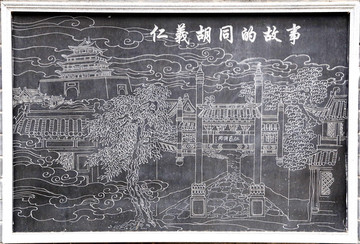 仁義胡同的故事